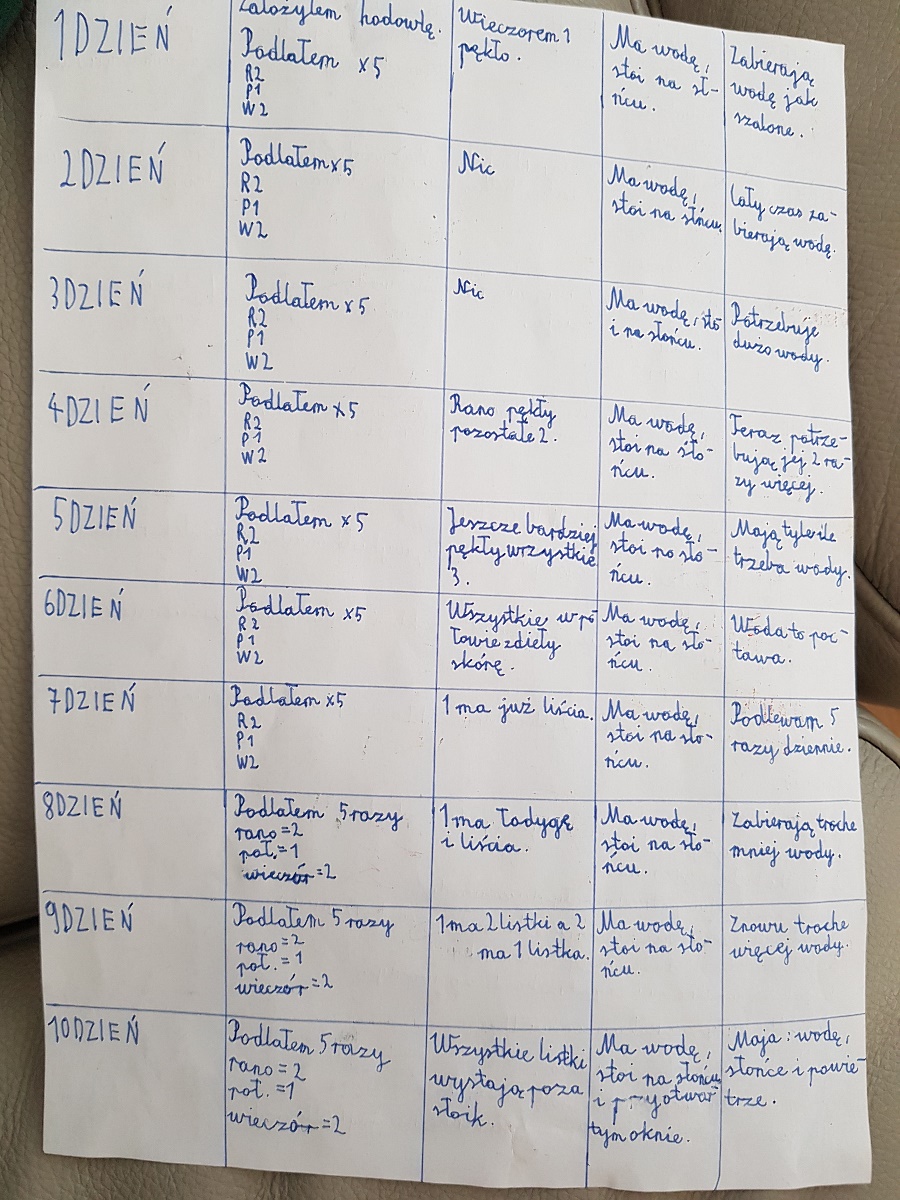 1DZIEŃ
Założyłem hodowlę.
Podlałem x5
R2
P1
W2
Wieczorem 1
pękło.
Ma wodę,
stoi na sł-
ńcu.
Zabierają
wodę jak
szalone.
2DZIEŃ
Podlałem x5
R2
P1
W2
Nic
Ma wodę,
stoi na słńcu.
Cały czas za-
bierają wodę.
3DZIEŃ
Podlałem x5
R2
P1
W2
Nic
Ma wodę, sto
i na słońcu.
Potrzebuje
dużo wody.
4DZIEŃ
Podlałem x5
R2
P1
W2
Rano pękły
pozostałe 2.
Ma wodę,
stoi na sło-
ńcu.
Teraz potrze-
bują jej 2 ra-
zy więcej.
5DZIEŃ
Podlałem x5
R2
P1
W2
Jeszcze bardziej
pękły wrzystkie
3.
Ma wodę,
stoi na sło-
ńcu.
Mają tyle ile
trzeba wody.
6DZIEŃ
Podlałem x5
R2
P1
W2
Wszystkie w pó
łowie zdieły
skórę.
Ma wodę,
stoi na sło-
ńcu.
Woda to poc-
tawa.
7DZIEŃ
Podlałem x5
R2
P1
W2
1 ma już liścia.
Ma wodę,
stoi na sło-
ńcu.
Podlewam 5
razy dziennie.
8DZIEŃ
Podlałem 5 razy
rano=2
poł.=1
wieczór=2
1 ma łodygę
i liścia.
Ma wodę,
stoi na sło-
ńcu.
Zabierają troche
mniej wody.
9DZIEŃ
Podlałem 5 razy
rano=2
poł.=1
wieczór=2
1 ma 2 listki a 2
ma 1 listka.
Ma wodę,
stoi na sło-
ńcu.
Znowu troche
więcej wody.
10DZIEŃ
Podlałem 5 razy
rano=2
poł.=1
wieczór=2
Wszystkie listki
wystają poza
słoik.
Ma wodę,
stoi na słońcu
i przy otwar
tym oknie.
Maja: wodę,
słońce i powie
trze.